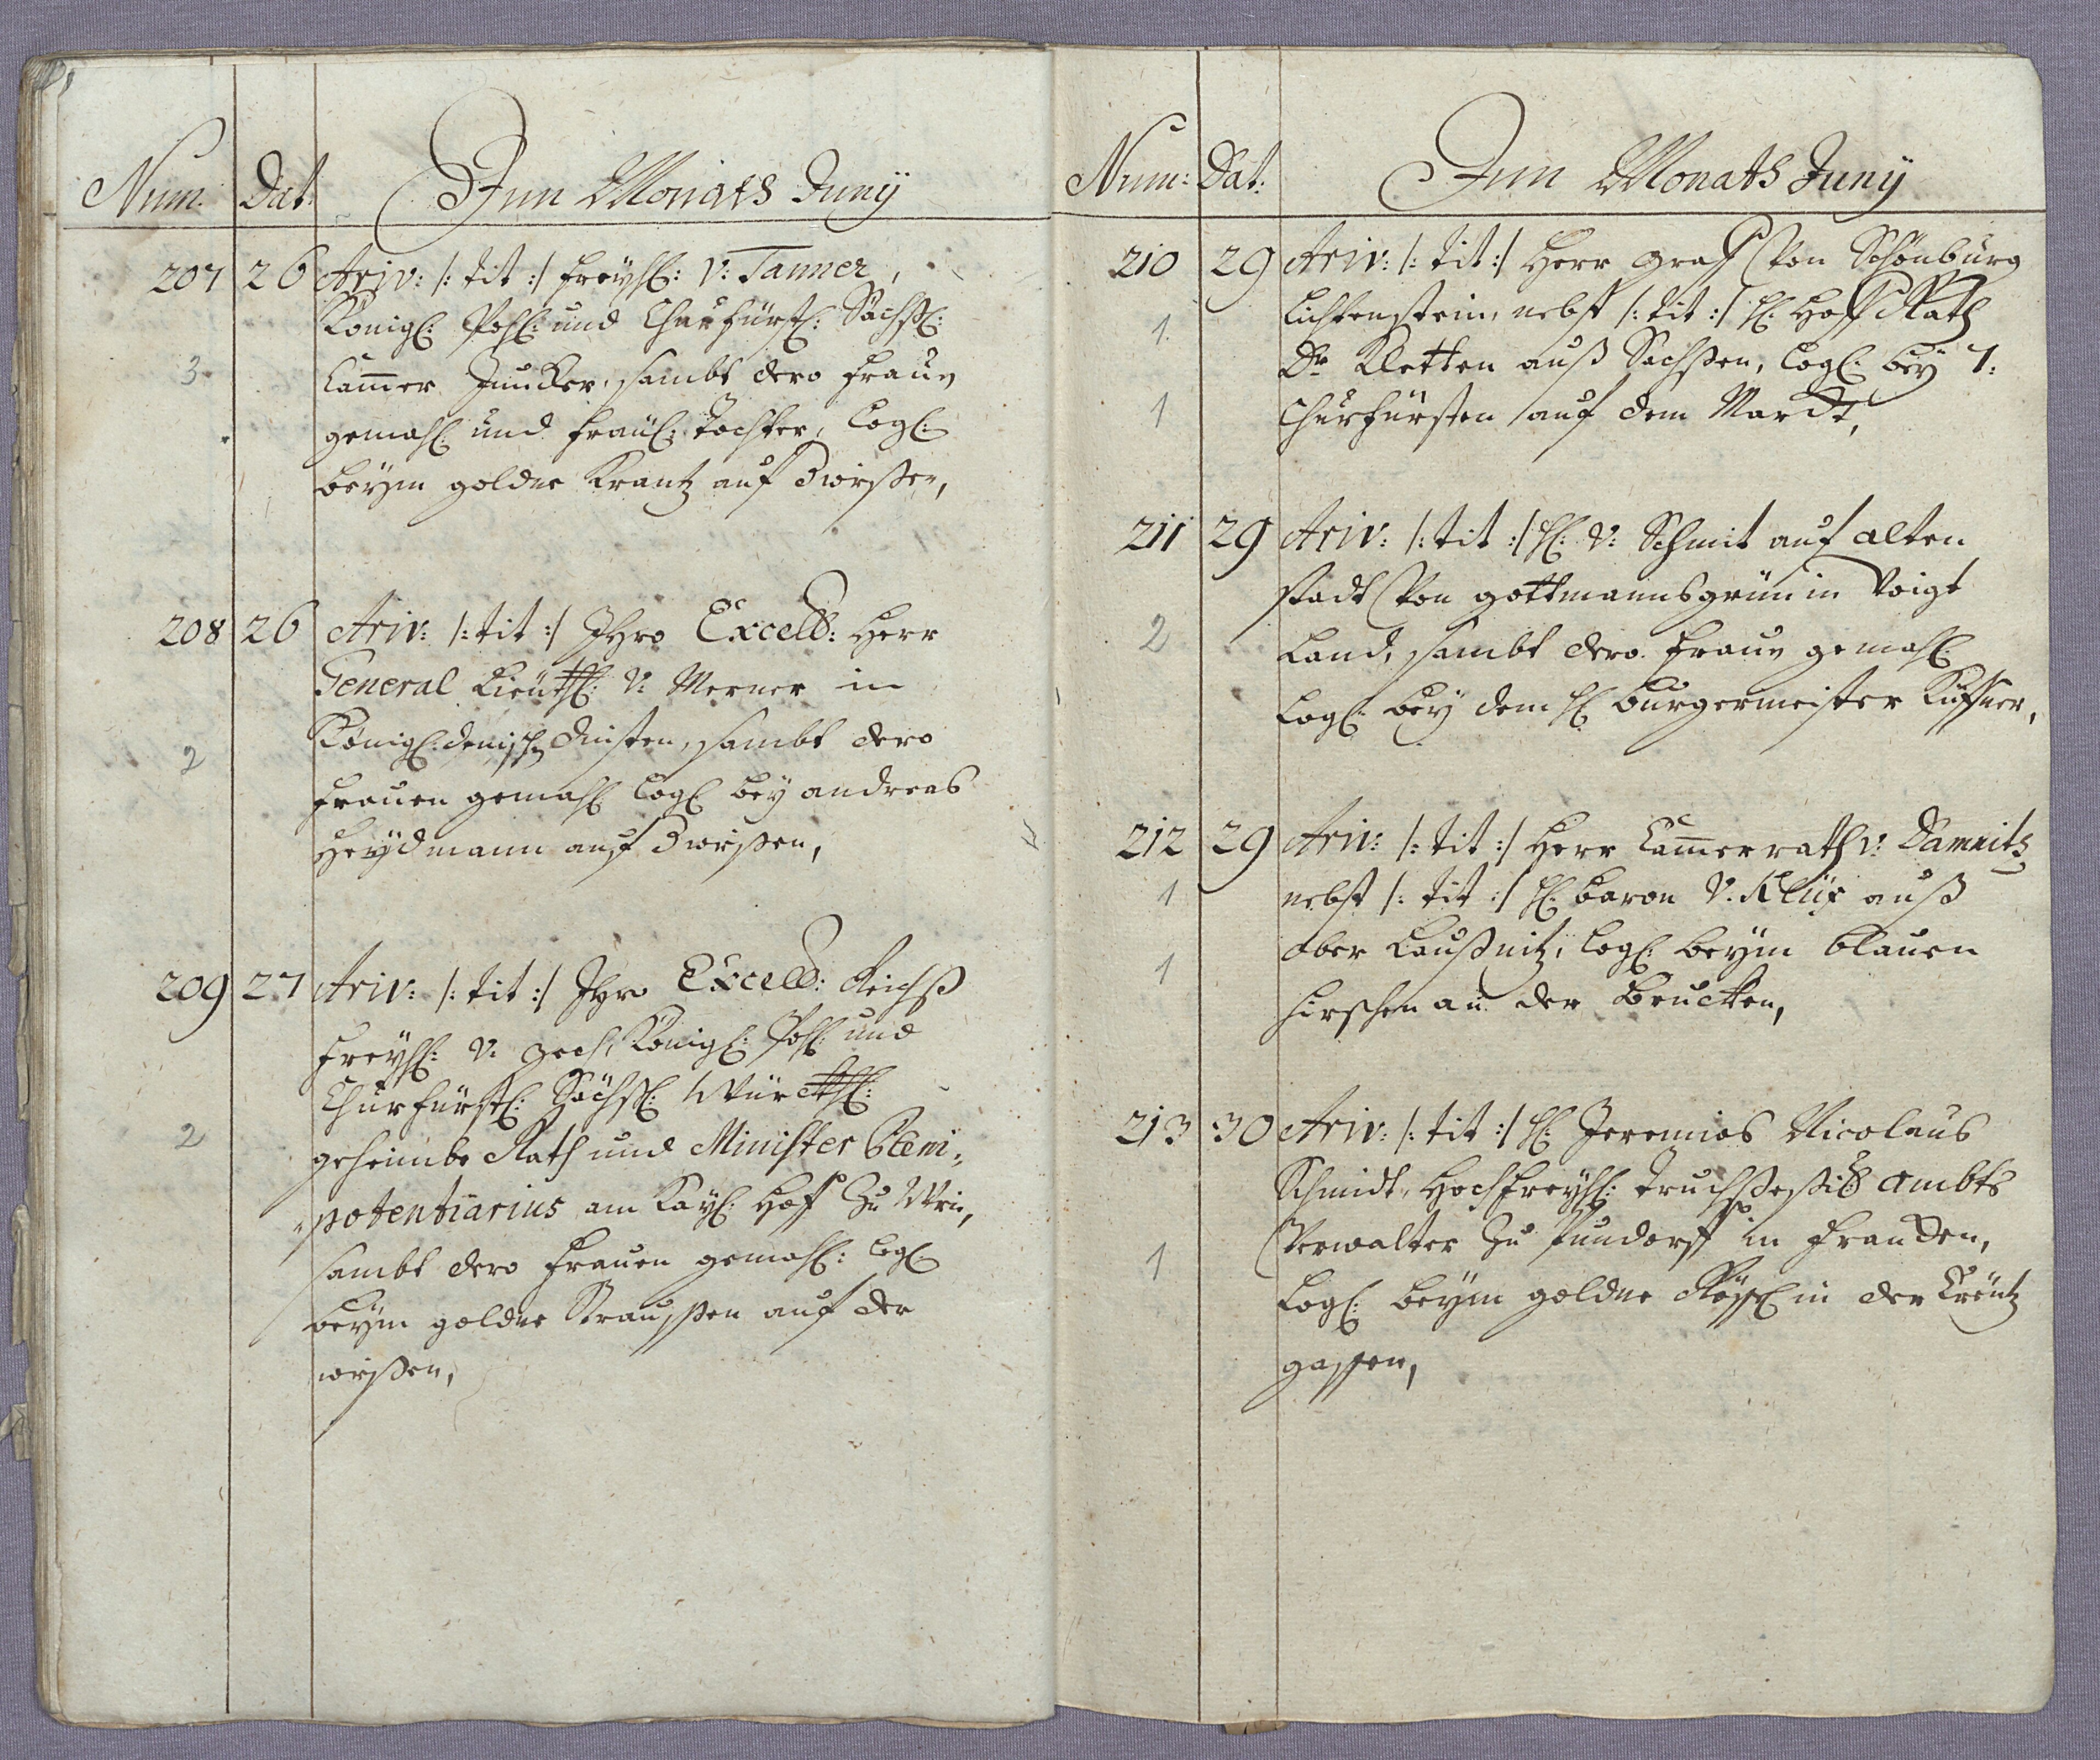 Num: Dat: Im Monats Juny
207 26 Ariv: /: tit :/ Freyh: v: Tanner,
Königl: Pohl: und Churfürstl: Sächßl:
3 Cammer Juncker, sambt dero Frauen
gemahl: und Fräul: Tochter, Logl:
beym goldne Krantz auf 3 wißen,
208 26 Ariv: /: tit :/ Ihro Excell: Herr
General Lieüth: v: Merner in
2 Königl: denisch dinsten, sambt dero
Frauen gemahl: Logl: bey andreas
Heydmann auf 3 wißen,
209 27 Ariv: /: tit :/ Ihro Excell: Reichß
Freyh: v: Zech, Königl: Pohl: und
Churfürstl: Sächßl: Würckl:
2 geheimbe Rath und Minister Pleni-
potentiarius am Kayl: Hof zu Wien,
sambt dero Frauen gemahl: Logl:
beym goldne Straußen auf der
wißen,
Num: Dat: Im Monats Juny
210 29 Ariv: /: tit :/ Herr Graf Von Schönburg
1 Lichtenstein, nebst /: tit :/ H: Hoff Rath
Dr Kletten auß Sachßen, Logl: bey 7:
1 Churfürsten auf dem Marckt,
211 29 Ariv: /: tit :/ H: v: Schmit auf alten
stadt Von gottmannsgrün in Voigt
2 Land, sambt dero Frauen gemahl:
Logl: bey dem H: burgermeister
212 29 Ariv: /: tit :/ Herr Cammerrath v: Damnitz
1 nebst /: tit :/ H: baron v: Klüx auß
1 ober Laußnitz, Logl: beym blauen
Hirschen an der Brucken,
213 30 Ariv: /: tit :/ H: Jeremias Nicolaus
Schmidt, Hochfreyh: Truchseßi: ambts
1 Verwalter zu Pundorff in Francken,
Logl: beym goldne Rößl in der Creütz
gassen,